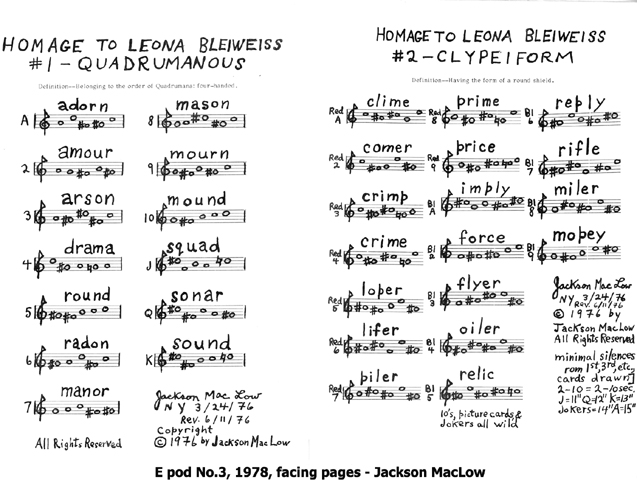 HOMAGE TO LEONA BLEIWEISS
#1-QUADRUMANOUS
Definition--Belonging to the order of Quadrumana: four-handed.
A adorn
2 amour
3 arson
4 drama
5 round
6 radon
7 manor
8 mason
9 mourn
10 mound
J squad
Q sonar
K sound
All Rights Reserved
Jackson Mac Low
NY 3/24/76
Rev. 6/11/76
Copyright
© 1976 by Jackson MacLow
HOMAGE TO LEONA BLEIWEISS
#2-CLYPEIFORM
Definition--Having the form of a round shield.
Red A clime
Red 2 comer
Red 3 crimp
Red 4 crime
Red 5 loper
Red 6 lifer
Red 7 piler
Red 8 prime
Red 9 price
Bl A imply
Bl 2 force
Bl 3 flyer
Bl 4 oiler
Bl 5 relic
10's, picture cards &
Jokers all wild
Bl 6 reply
Bl 7 rifle
Bl 8 miler
Bl 9 mopey
Jackson Mac Low
NY 3/24/76
Rev. 6/11/76
© 1976 by
Jackson MacLow
All Rights Reserved
minimal silences
rom 1st, 3rd, etc.
cards drawn]
2-10 = 2-10sec.
J=11" Q=12" K=13"
Jokers=14" A=15"
E pod No.3, 1978, facing pages - Jackson MacLow